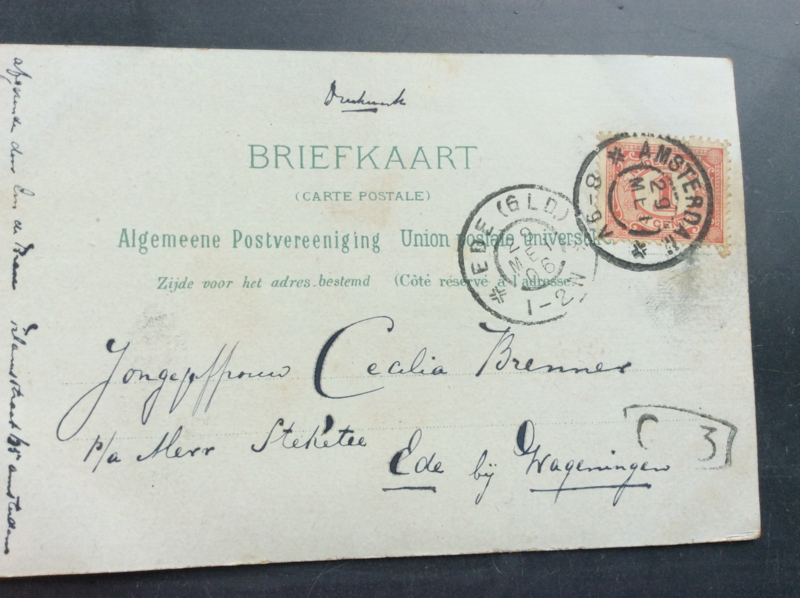 Drukwerk
BRIEFKAART
(CARTE POSTALE)
Algemeene Postvereeniging Union postale universelle
Zijde voor het adres bestemd (Côté réservé à l'adresse)
AMSTERDAM
29 MEI
6-8
EDE (GLD)
29 MEI 06
1-2N
Jongejffrouw Cecilia Brenner
p/a Mevr Steketee
Ede bij Wageningen
3
afzender